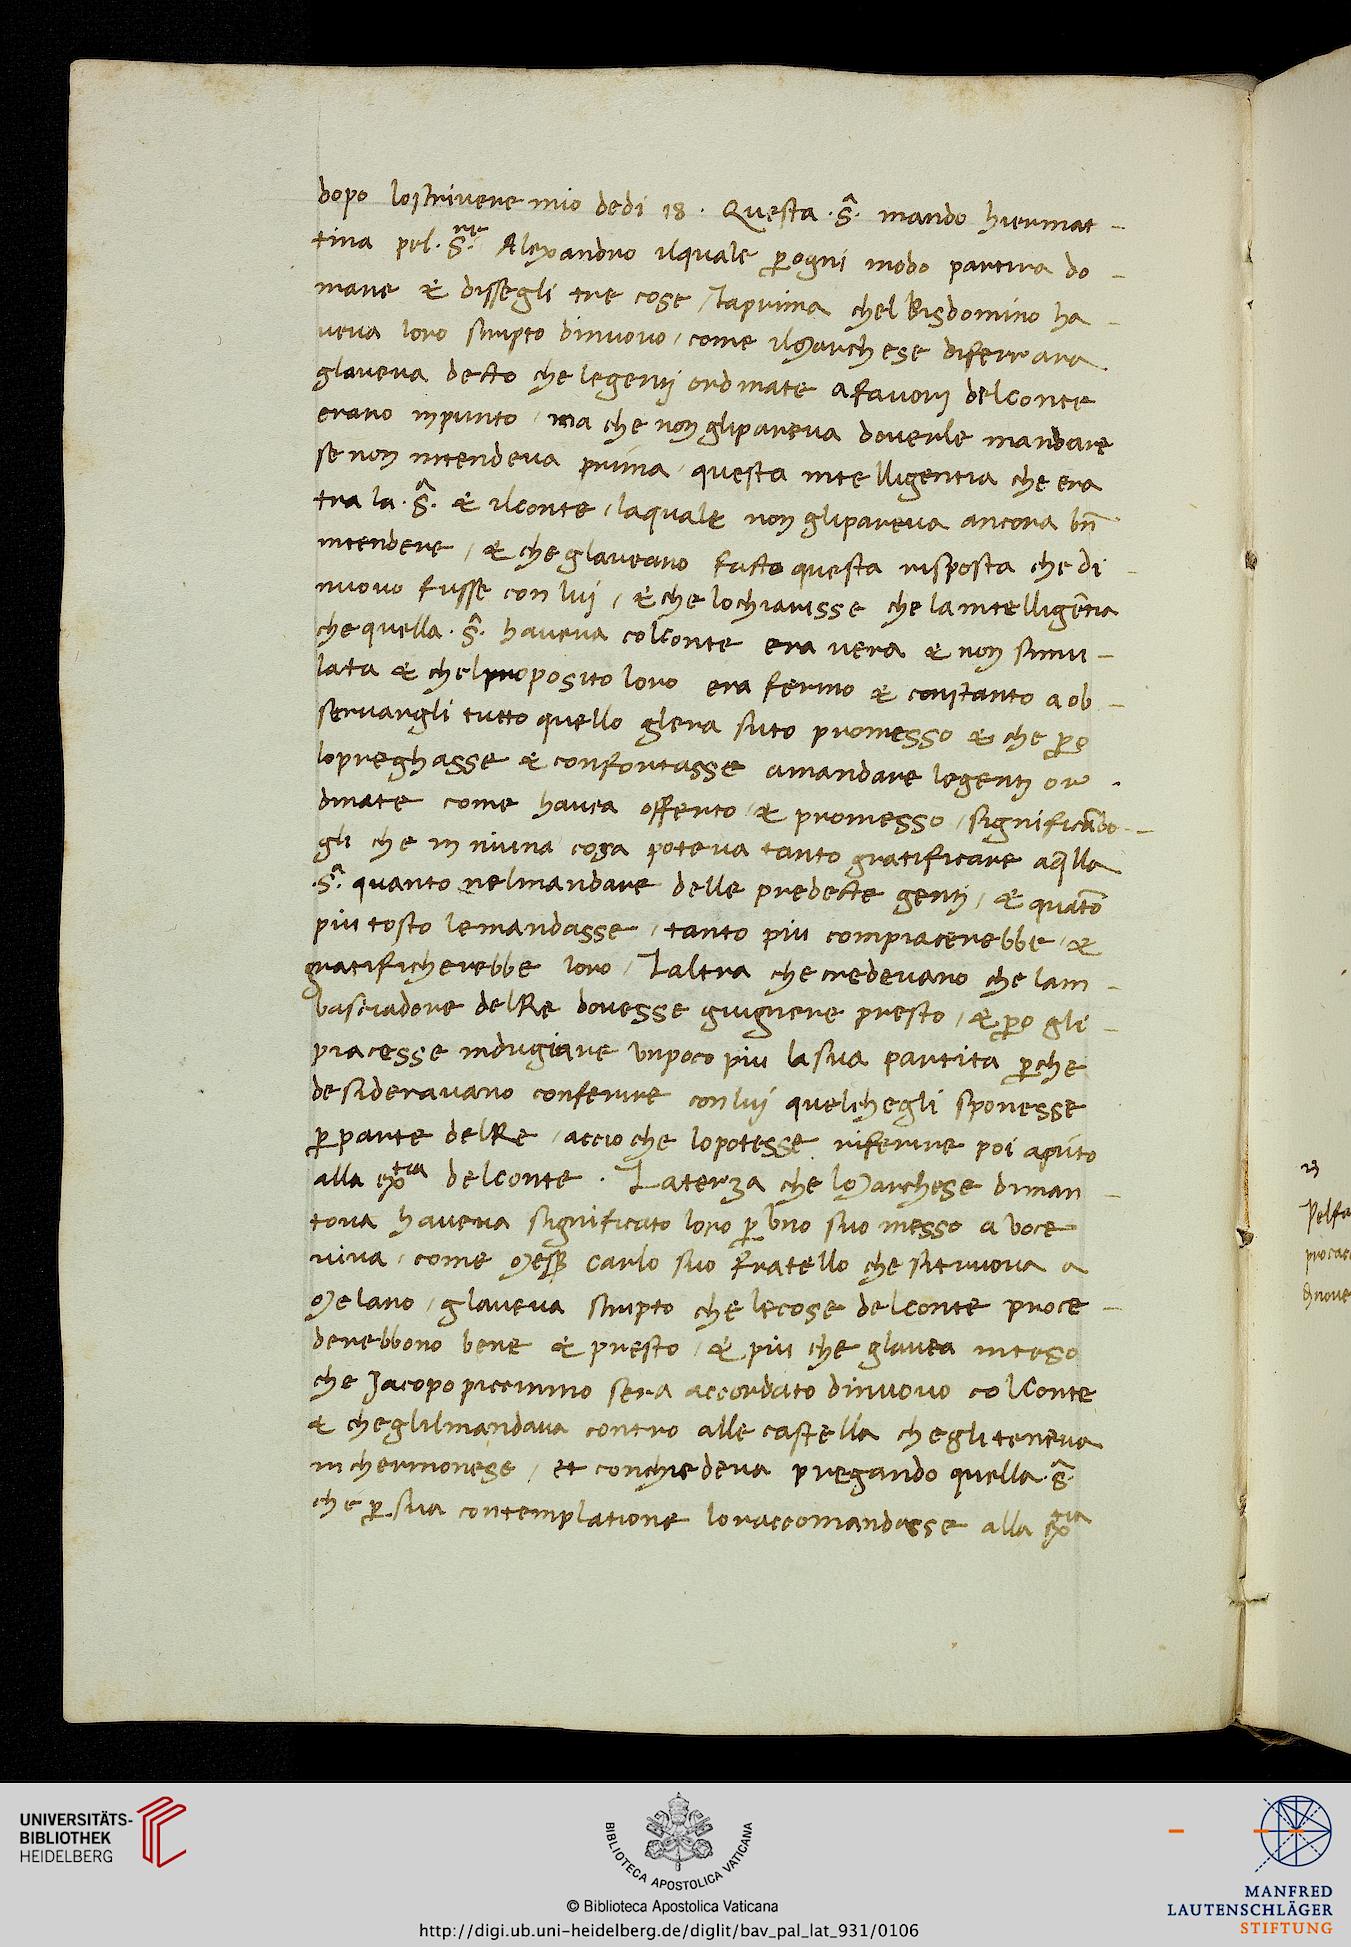 dopo loscrivere mio dedi 18. Questa .S̃. mando hiermat-
tina pel .S.re Alexandro ilquale p̱ogni modo partira do-
mane & dissegli tre cose / Laprima chel Visdomino ha-
veva loro scripto dinuovo / come ilMarchese diferrara
glaveva decto che legentj ordinate afavorj delconte
erano inpunto / ma che non glipareva doverle mandare
se non intendeva prima / questa intelligentia che era
tra la .S̃. & ilconte / laquale non glipareva ancora bñ
intendere / & che glaveano facto questa risposta che di
nuovo fusse con luj / & che lochiarisse che laintelligẽtia
che quella .S̃. haveva colconte era vera & non simu-
lata & chelproposito loro era fermo & constanto a ob-
servargli tutto quello glera suto promesso & che p̱o
lopreghasse & confortasse amandare legentj or-
dinate come havea offerto / & promesso / significãdo-
gli che in niuna cosa poteva tanto gratificare aq̃lla
.S̃. quanto nelmandare delle predecte gentj / & quãto
piu tosto lemandasse / tanto piu compiacerebbe / &
gratificherebbe loro / Laltra che credevano che lam-
basciadore delRe dovesse giugnere presto / & p̱o gli-
piacesse indugiare unpoco piu lasua partita p̱che
desideravano conferire conluj quelchegli sponesse
p̱ parte delRe / accio che lopotesse riferire poi apũto
alla ex.tia delconte . Laterza che loMarchese diman-
tova haveva significato loro p̱ uno suo messo a voce
viva / come Mess̃ Carlo suo fratello che sitruova a
Melano / glaveva scripto che lecose delconte proce-
derebbono bene & presto / & piu che glavea inteso
che Jacopo piccinino sera accordato dinuovo colConte
& cheglilmandava contro alle castella chegliteneva
in chermonese / et conchiedeva pregando quella .S̃.
che p̱ sua contemplatione loraccomandasse alla ex.tia
23
Pelfa
procac
UNIVERSITÄTS-
BIBLIOTHEK
HEIDELBERG
BIBLIOTECA APOSTOLICA VATICANA
© Biblioteca Apostolica Vaticana
http://digi.ub.uni-heidelberg.de/diglit/bav_pal_lat_931/0106
MANFRED
LAUTENSCHLÄGER
STIFTUNG